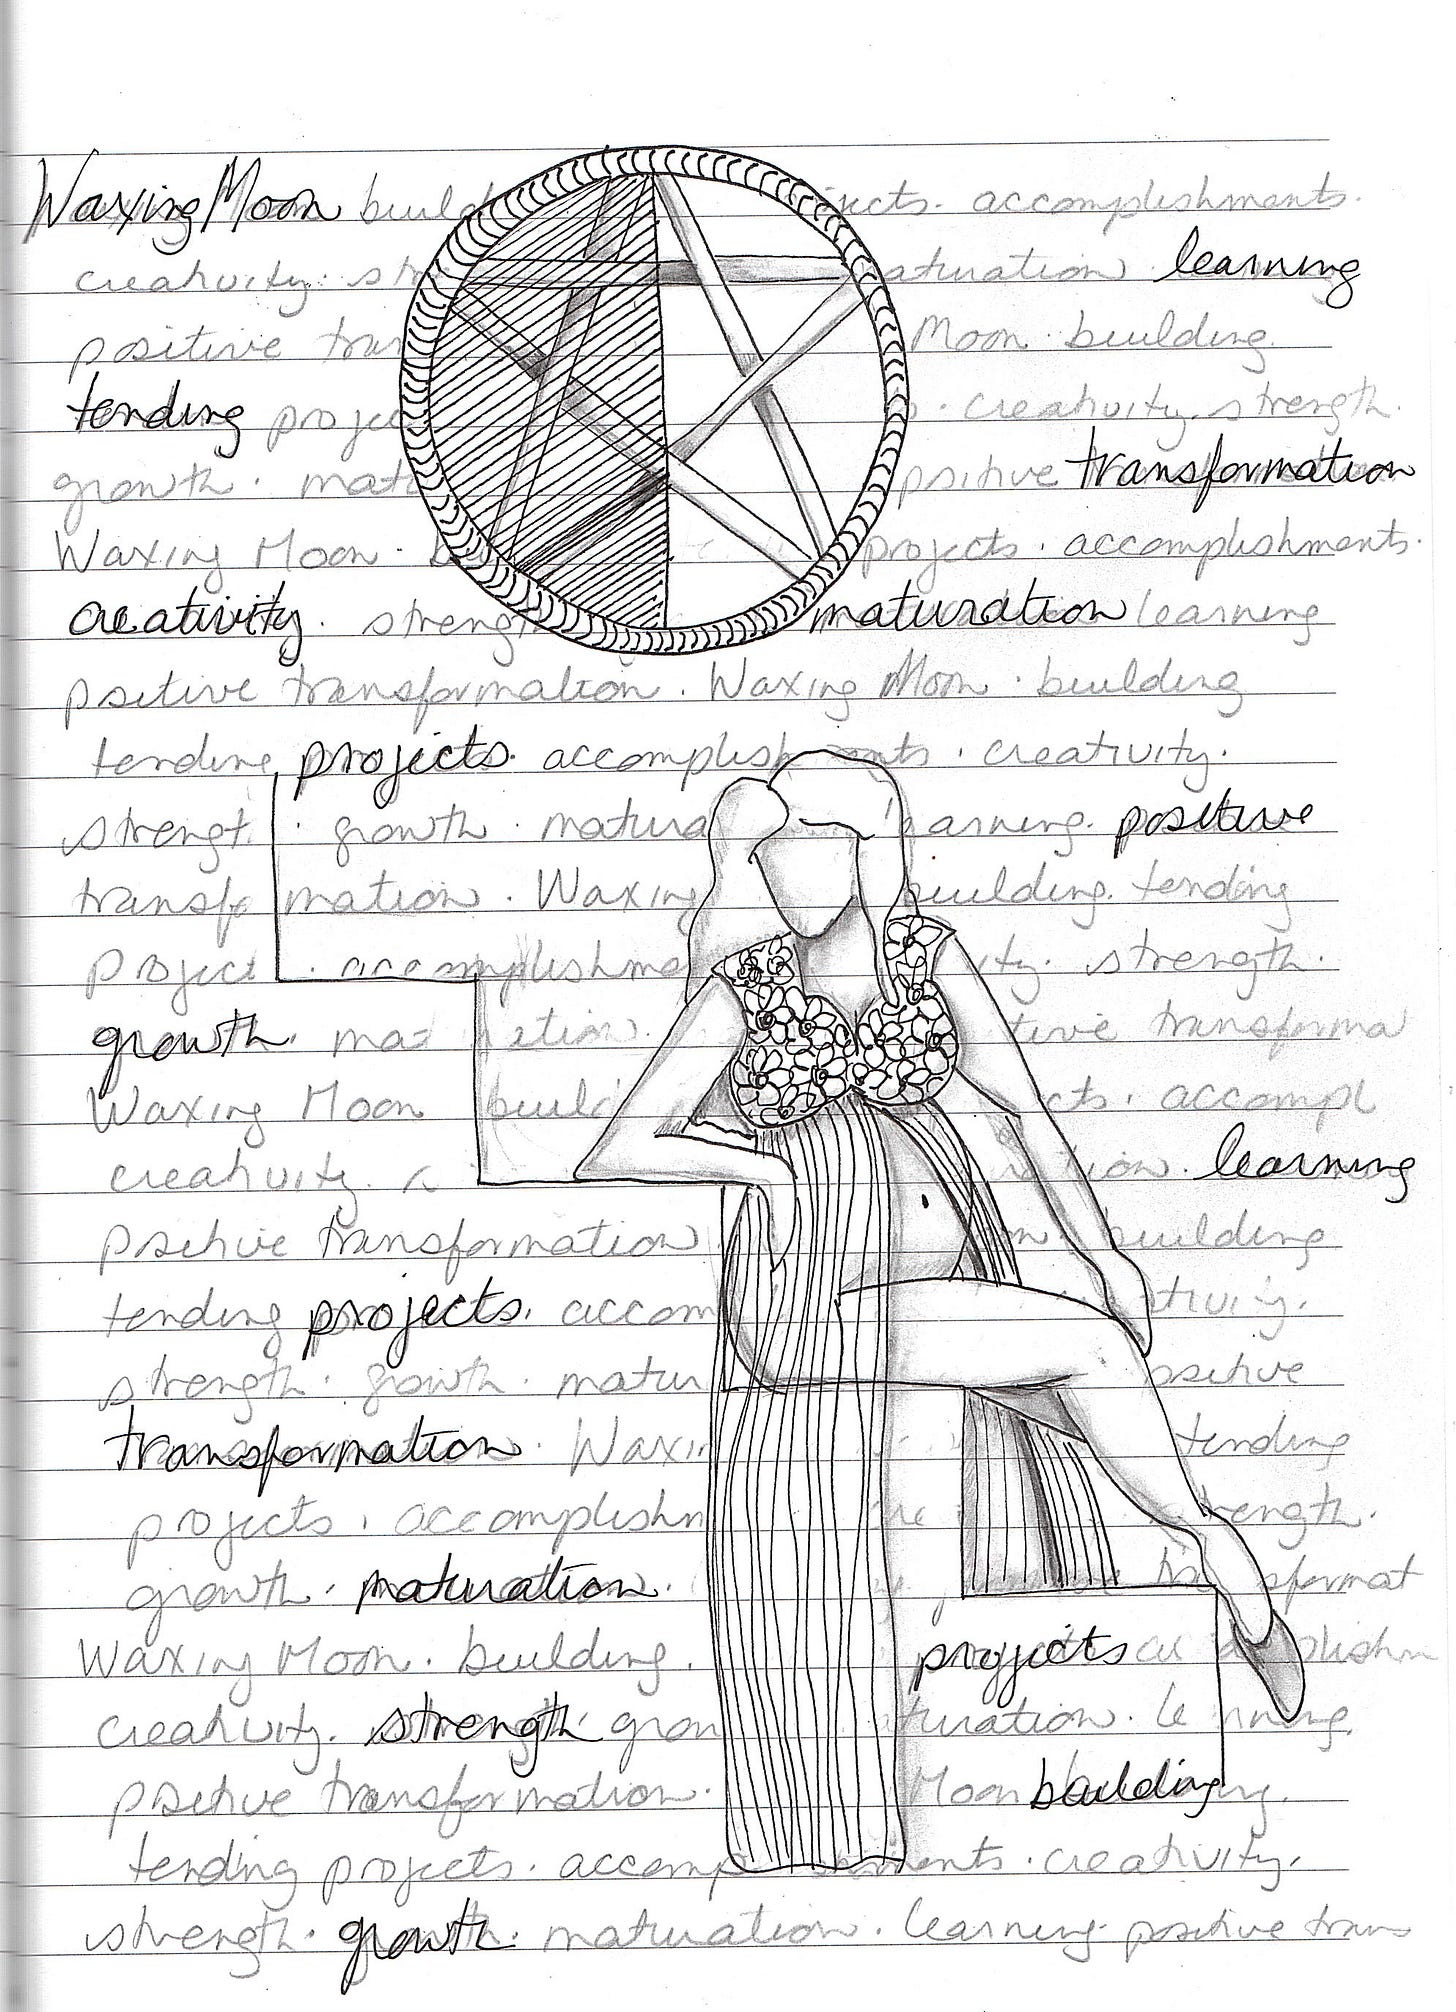 Waxing Moon jects. accomplishments.
creativity. maturation learning
positive Moon. building.
tending creativity. strength.
growth. positive transformation
Waxing Moon. projects. accomplishments.
creativity. maturation learning
psitive transformation. Waxing Moon. building
tending projects. accomplishments. creativity.
strengt growth. matura learning. positive
transfo mation. Waxing building. tending
project. accomplishme ity. strength.
growth. tive transforma
Waxing Moon build cts. accompl
creativity. learning
psitive transformation building
tending projects. accom tivity.
strength. growth. matur positive
transformation. Waxi tending
projects. accomplishm strength.
growth. maturation.
Waxing Moon. building. projects
creativity. strength grow turation.
psitive transformation. Moon building
tending projects. accomp ments. creativity.
strength. growth. maturation. learning positive trans